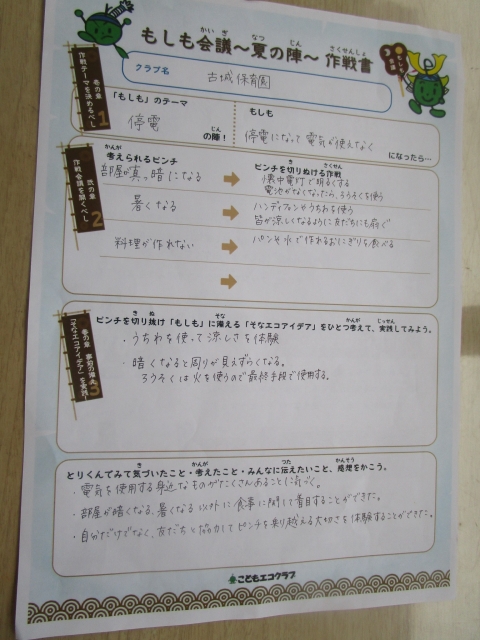 もしも会議～夏の陣～ 作戦書
クラブ名
古城保育園
壱の章
作戦テーマを決めるべし
1
「もしも」のテーマ
停電
の陣！
もしも
停電になって電気が使えなく
になったら…
弐の章
作戦会議を開くべし
2
考えられるピンチ
ピンチを切りぬける作戦
部屋が真っ暗になる
懐中電灯で明るくする
電池がなくなったら、ろうそくを使う
暑くなる
ハンディファンやうちわを使う
皆が涼しくなるように友だちにも扇ぐ
料理が作れない
パンや水で作れるおにぎりを食べる
参の章 事前の備え
「そなエコアイデア」を実践！
3
ピンチを切り抜け「もしも」に備える「そなエコアイデア」をひとつ考えて、実践してみよう。
・うちわを使って涼しさを体験
・暗くなると周りが見えずらくなる。
ろうそくは火を使うので最終手段で使用する。
とりくんでみて気づいたこと・考えたこと・みんなに伝えたいこと、感想をかこう。
・電気を使用する身近なものがたくさんあることに気づく。
・部屋が暗くなる、暑くなる以外に食事に関して着目することができた。
・自分だけでなく、友だちと協力してピンチを乗り越える大切さを体験することができた。
こどもエコクラブ